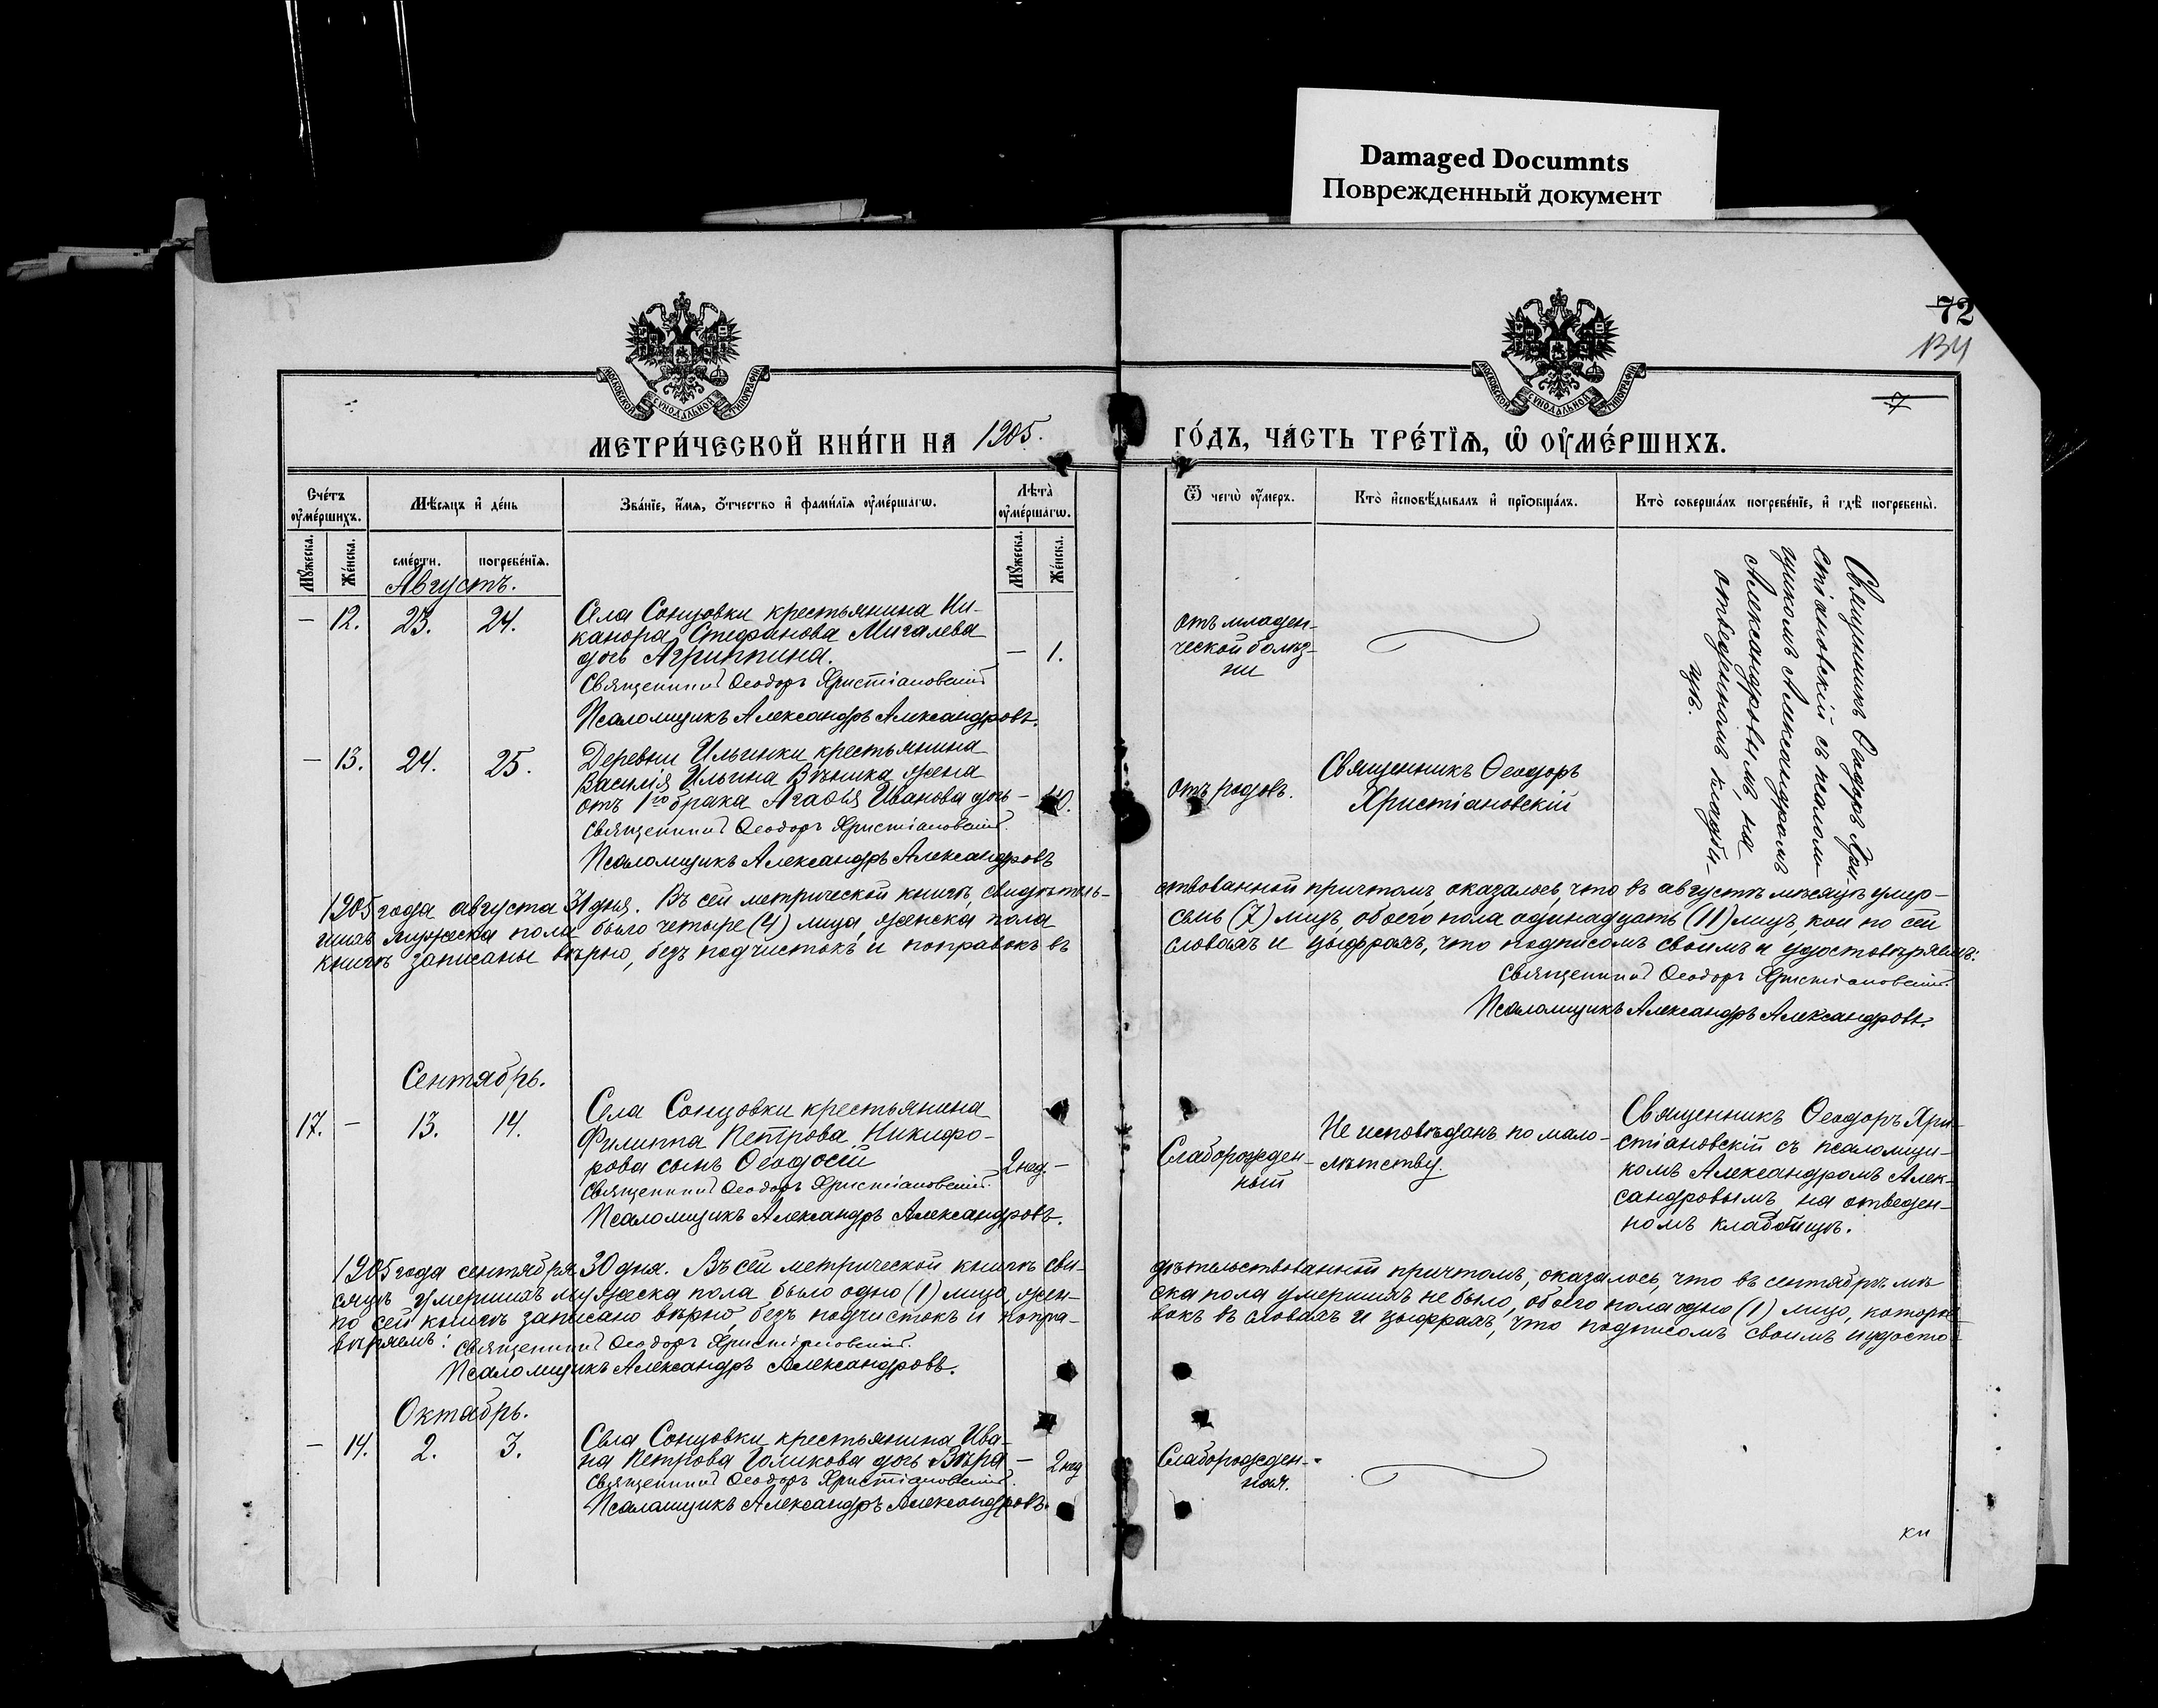 Damaged Documnts
Поврежденный документ
72
134
7
МОСКОВСКОЙ СУНОДАЛЬНОЙ ТИПОГРАФІИ
МОСКОВСКОЙ СУНОДАЛЬНОЙ ТИПОГРАФІИ
МЕТРИ́ЧЕСКОЙ КНИ́ГИ НА 1905.
ГО́ДЪ, ЧА́СТЬ ТРЕ́ТІѦ, Ѽ ОУ҆МЕ́РШИХЪ.
Сче́тъ оу҆ме́ршихъ.
Мѣ́сяцъ и҆ де́нь
Зва́нїе, и҆́мѧ, ѻ҆́тчество и҆ фами́лїѧ оу҆ме́ршагѡ.
Лѣ́та̀ оу҆ме́ршагѡ.
Ѿ чегѡ̀ оу҆́меръ.
Кто̀ и҆сповѣ́дывалъ и҆ прїѡбща́лъ.
Кто̀ соверша́лъ погребе́нїе, и҆ гдѣ̀ погребены̀.
Мꙋ́жеска.
Же́нска.
сме́рти.
погребе́нїѧ.
Мꙋ́жеска.
Же́нска.
Августъ.
— 12. 23. 24.
Села Сонцовки крестьянина Ни-
канора Стефанова Мигалева
дочь Агриппина.
— 1.
Священникъ Ѳеодоръ Христіановскій
Псаломщикъ Александръ Александровъ.
отъ младен-
ческой болѣз-
ни
Священникъ Ѳеодоръ Хри-
стіановскій съ псалом-
щикомъ Александромъ
Александровымъ, на
отведенномъ кладби-
щѣ.
— 13. 24. 25.
Деревни Ильинки крестьянина
Василія Ильина Вѣника жена
отъ 1го брака Агаѳья Иванова дочь — 40.
Священникъ Ѳеодоръ Христіановскій.
Псаломщикъ Александръ Александровъ
отъ родовъ.
Священникъ Ѳеодоръ
Христіановскій
1905 года августа 31 дня. Въ сей метрической книгѣ, свидѣтель-
ствованной причтомъ, оказалось, что въ августѣ мѣсяцѣ умер-
шихъ мужеска пола было четыре (4) лица, женска пола
семь (7) лицъ, обоего пола одинадцать (11) лицъ, кои по сей
книгѣ записаны вѣрно, безъ подчистокъ и поправокъ въ
словахъ и цыфрахъ, что подписомъ своимъ и удостовѣряемъ:
Священникъ Ѳеодоръ Христіановскій.
Псаломщикъ Александръ Александровъ.
Сентябрь.
17. — 13. 14.
Села Сонцовки крестьянина
Филиппа Петрова Никифо-
рова сынъ Ѳеодосій
2 нед. —
Священникъ Ѳеодоръ Христіановскій.
Псаломщикъ Александръ Александровъ.
Слаборожден-
ный
Не исповѣданъ по мало-
лѣтству.
Священникъ Ѳеодоръ Хри-
стіановскій съ псаломщи-
комъ Александромъ Алек-
сандровымъ, на отведен-
номъ кладбищѣ.
1905 года сентября 30 дня. Въ сей метрической книгѣ сви-
дѣтельствованной причтомъ, оказалось, что въ сентябрѣ мѣ
сяцѣ умершихъ мужеска пола было одно (1) лицо, жен-
ска пола умершихъ не было, обоего пола одно (1) лицо, которое
по сей книгѣ записано вѣрно, безъ подчистокъ и попра-
вокъ въ словахъ и цыфрахъ, что подписомъ своимъ и удосто-
вѣряемъ: Священникъ Ѳеодоръ Христіановскій.
Псаломщикъ Александръ Александровъ.
Октябрь.
— 14. 2. 3.
Села Сонцовки крестьянина Ива-
на Петрова Голикова дочь Вѣра — 2 нед
Священникъ Ѳеодоръ Христіановскій.
Псаломщикъ Александръ Александровъ.
Слаборожден-
ная.
кн